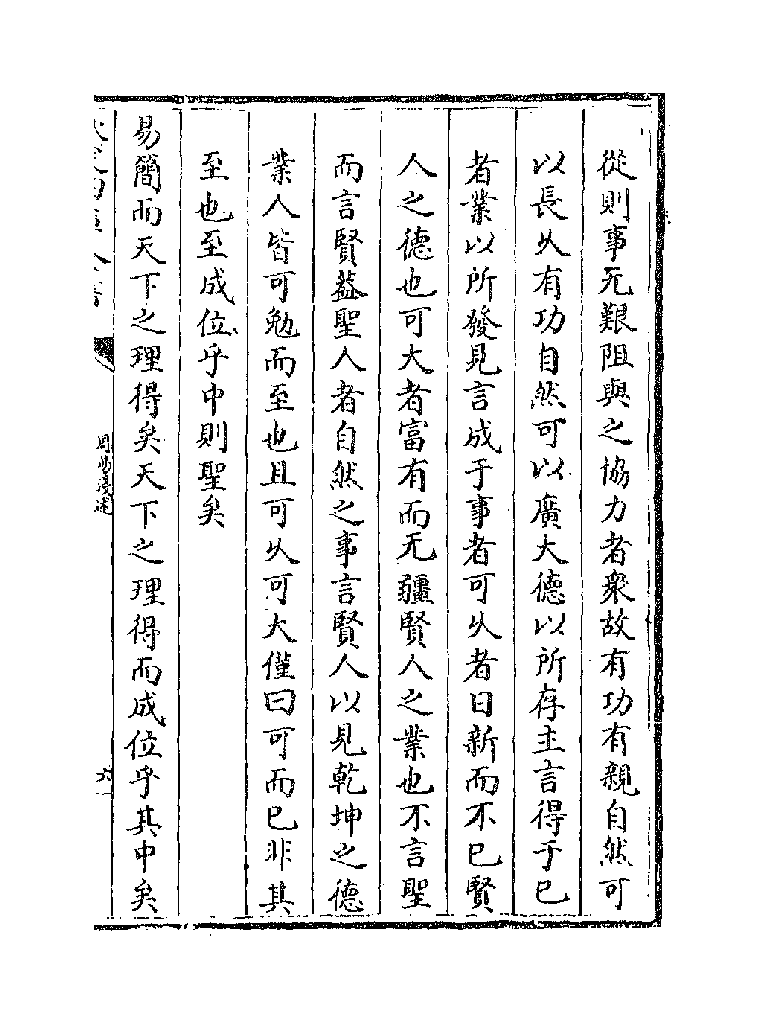 從則事无艱阻與之協力者衆故有功有親自然可
以長乆有功自然可以廣大德以所存主言得于已
者業以所發見言成于事者可乆者日新而不已賢
人之德也可大者富有而无疆賢人之業也不言聖
而言賢葢聖人者自然之事言賢人以見乾坤之德
業人皆可勉而至也且可乆可大僅曰可而已非其
至也至成位乎中則聖矣
易簡而天下之理得矣天下之理得而成位乎其中矣
周易淺述